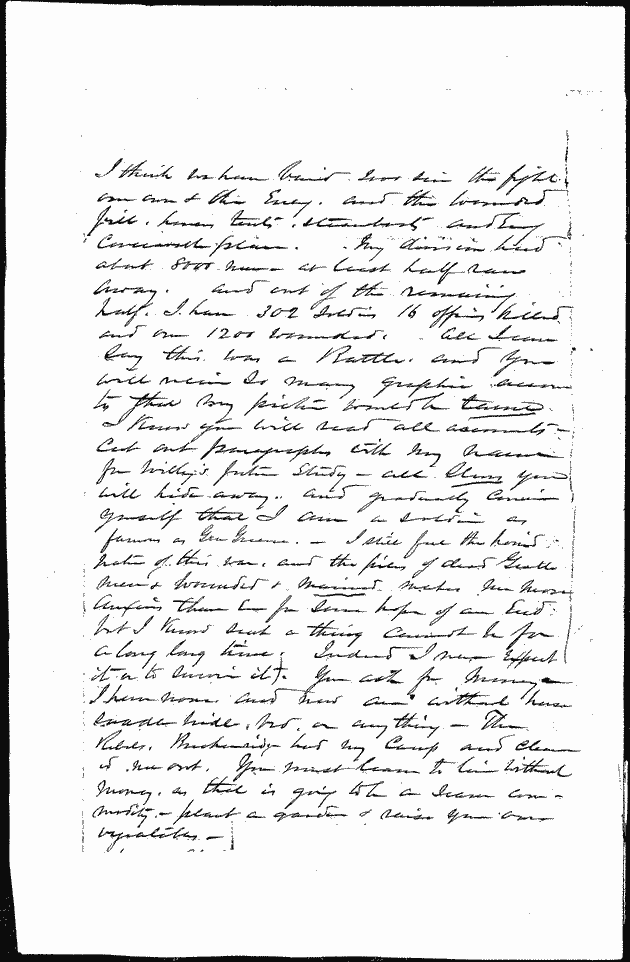 I think we have buried 2000 since the fight
our own & the Enemy, and the wounded
fill, houses tents, steamboats and Every
Conceivable place. My division had
about 8000 men at least half ran
away, and out of the remaining
half, I have 302 soldiers 16 officers killed
and over 1200 wounded. All I can
Say this was a Battle, and you
will receive So many graphic accoun
ts that my picture would be tame.
I Know you will read all accounts -
Cut out paragraphs with my name
for Willy's future Study - all Slurs you
will hide away, and gradually Convince
yourself that I am a soldier as
famous as Gen Greene. - I still feel the horrid
nature of this war, and the piles of dead Gentle
men & wounded & maimed makes me more
anxious than Ever for some hope of an End
but I Know such a thing cannot be for
a long long time. Indeed I never Expect
it or to survive it. You ask for money -
I have none, and now am without horse
saddle bridle, bed, or anything - The
Rebels, Breckenridge had my Camp and Cleaned
me out. You must learn to live without
money, as that is going to be a scarce com -
modity - plant a garden & raise your own
vegetables -